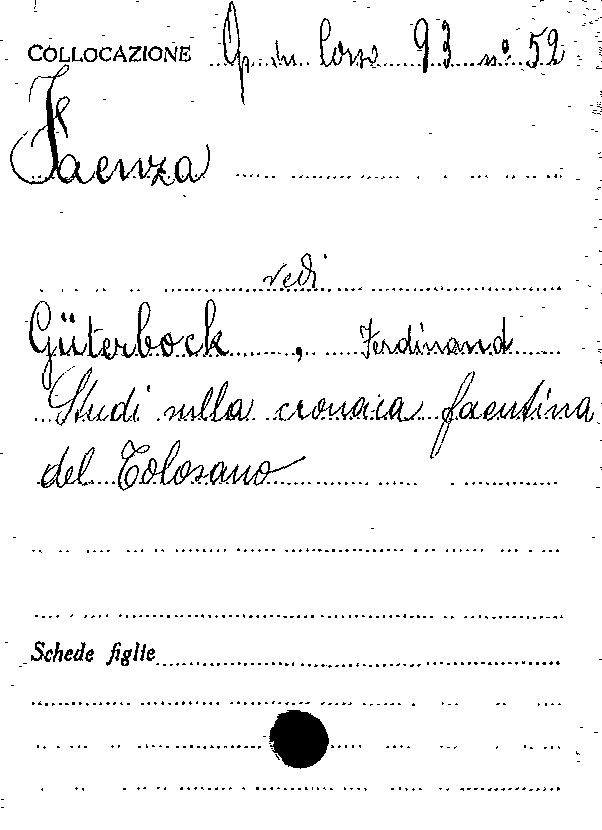 COLLOCAZIONE Op. in Corso 93 n° 52
Faenza
vedi
Güterbock, Ferdinand
Studi sulla cronaca faentina
del Tolosano
Schede figlie